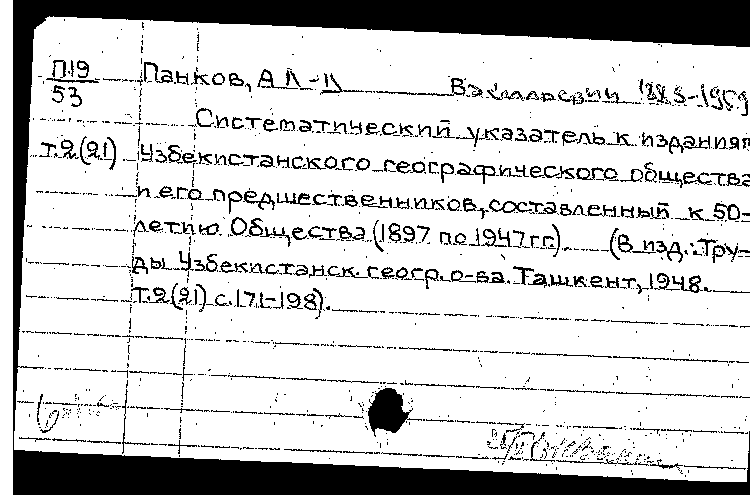 П19
53
Панков, А. Васильевич 1883-1959
Систематический указатель к изданиям
т.2(21) Узбекистанского географического общества
и его предшественников, составленный к 50-
летию Общества (1897 по 1947 гг.). (В изд.: Тру-
ды Узбекистанск. геогр. о-ва. Ташкент, 1948.
Т.2(21) с.171-198).